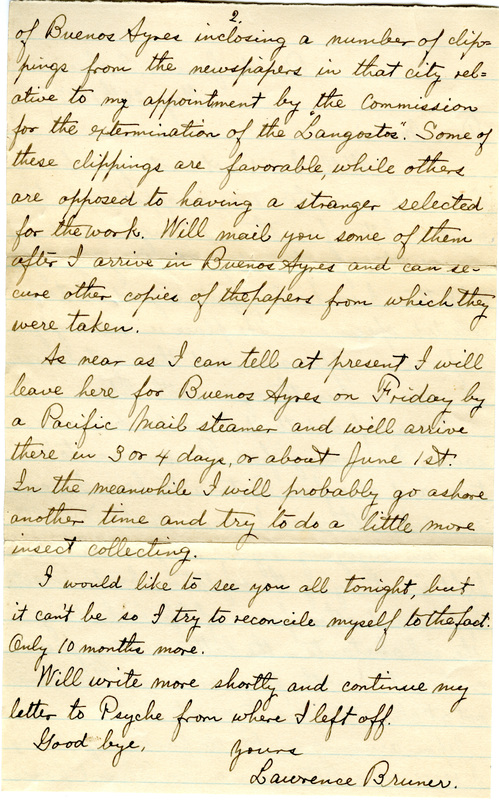 2.
of Buenos Ayres inclosing a number of clip=
pings from the newspapers in that city rel=
ative to my appointment by the Commission
for the extermination of the "Langostos". Some of
these clippings are favorable, while others
are opposed to having a stranger selected
for the work. Will mail you some of them
after I arrive in Buenos Ayres and can se-
cure other copies of the papers from which they
were taken.
As near as I can tell at present I will
leave here for Buenos Ayres on Friday by
a Pacific Mail steamer and will arrive
there in 3 or 4 days, or about June 1st.
In the meanwhile I will probably go ashore
another time and try to do a little more
insect collecting.
I would like to see you all tonight, but
it can't be so I try to reconcile myself to the fact.
Only 10 months more.
Will write more shortly and continue my
letter to Psyche from where I left off.
Good bye,
Yours
Lawrence Bruner.